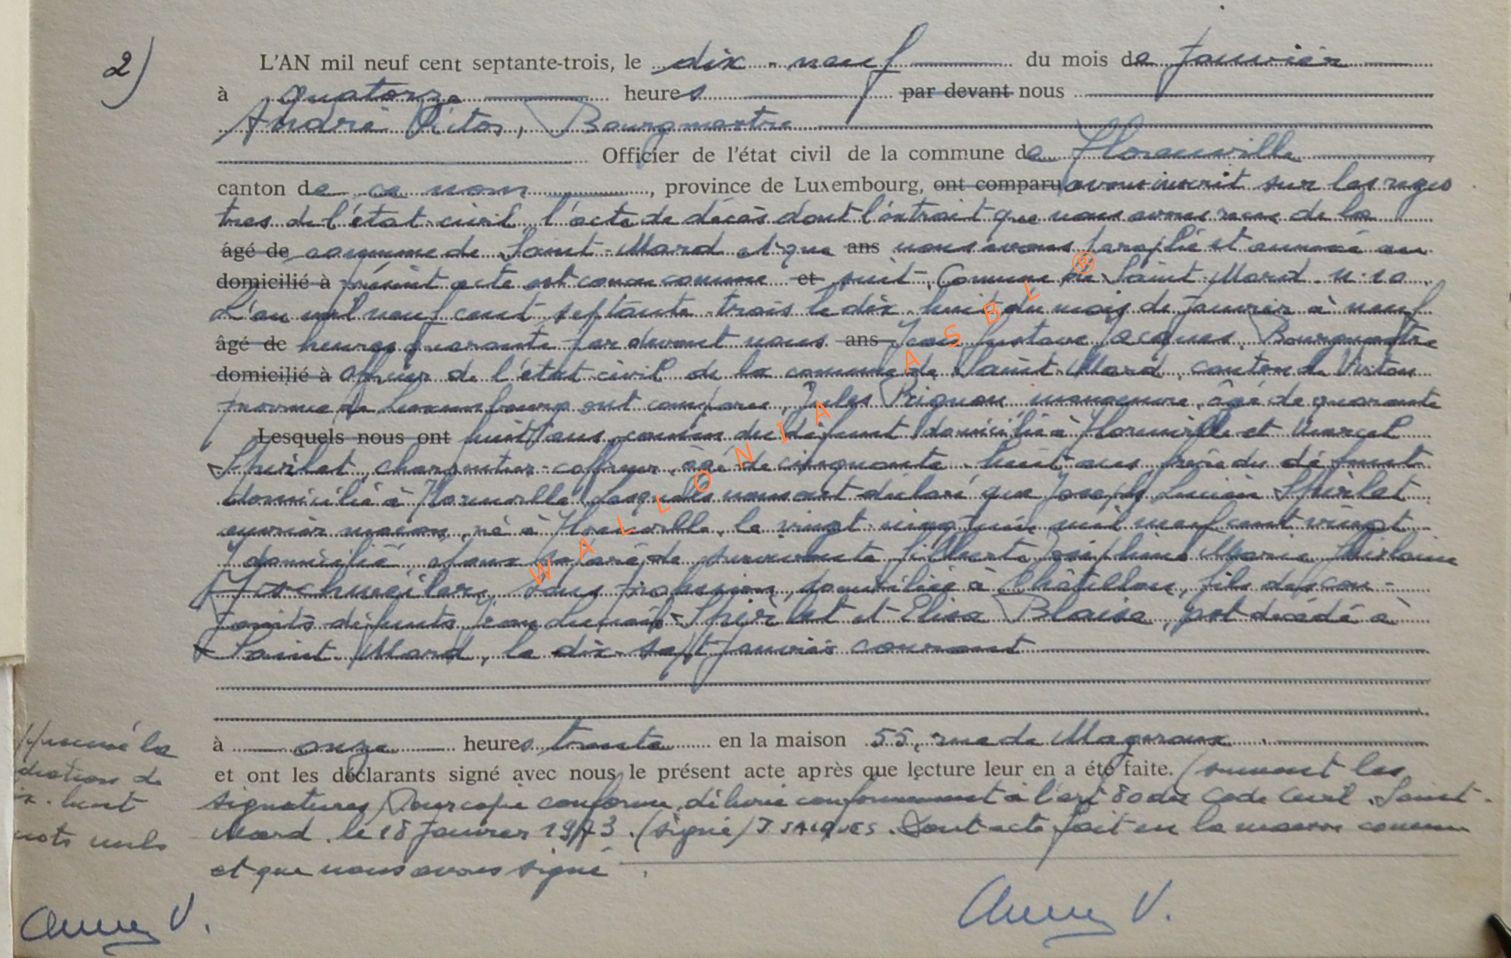 2)
L'AN mil neuf cent septante-trois, le dix-neuf du mois de Janvier
à quatorze heures par devant nous
André, Bourgmestre
Officier de l'état civil de la commune de Florenville
canton de ce nom, province de Luxembourg, ont comparu avons inscrit sur les regis
tres de l'état civil l'acte de décès dont l'extrait que nous avons reçu de la
âgé de commune de Saint-Mard et que ans nous avons paraphé et annexé au
domicilié à présent acte est conçu comme et suit. Commune de Saint-Mard n. 10
L'an mil neuf cent septante trois le dix huit du mois de janvier à neuf
âgé de heures quarante par devant nous ans Gustave Jacques, Bourgmestre
domicilié à officier de l'état civil de la commune de Saint-Mard, canton de Virton
province de Luxembourg ont comparu, Jules Prignon, manoeuvre, âgé de quarante
Lesquels nous ont huit ans, cousin du défunt domicilié à Florenville et Marcel
Spirlet charpentier-coffreur, âgé de cinquante huit ans frère du défunt
domicilié à Florenville, lesquels nous ont déclaré que Joseph Lucien Spirlet
ouvrier maçon, né à Florenville, le vingt juin mil neuf cent vingt
domicilié époux séparé de Joséphine Marie Ghislaine
sans profession, domiciliée à Châtillon, fils des con-
joints défunts Spirlet et Elisa Blaise, est décédé à
Saint Mard, le dix-sept janvier courant
à onze heures trente en la maison 55, rue de Mageroux
et ont les déclarants signé avec nous le présent acte après que lecture leur en a été faite. (suivent les
signatures) Pour copie conforme, délivrée conformément à l'art 80 du Code Civil. Saint-
Mard, le 18 Janvier 1973. (signé) J. JACQUES. Dont acte fait en la maison commune
et que nous avons signé.
la
de
huit
mots nuls
WALLONIA ASBL